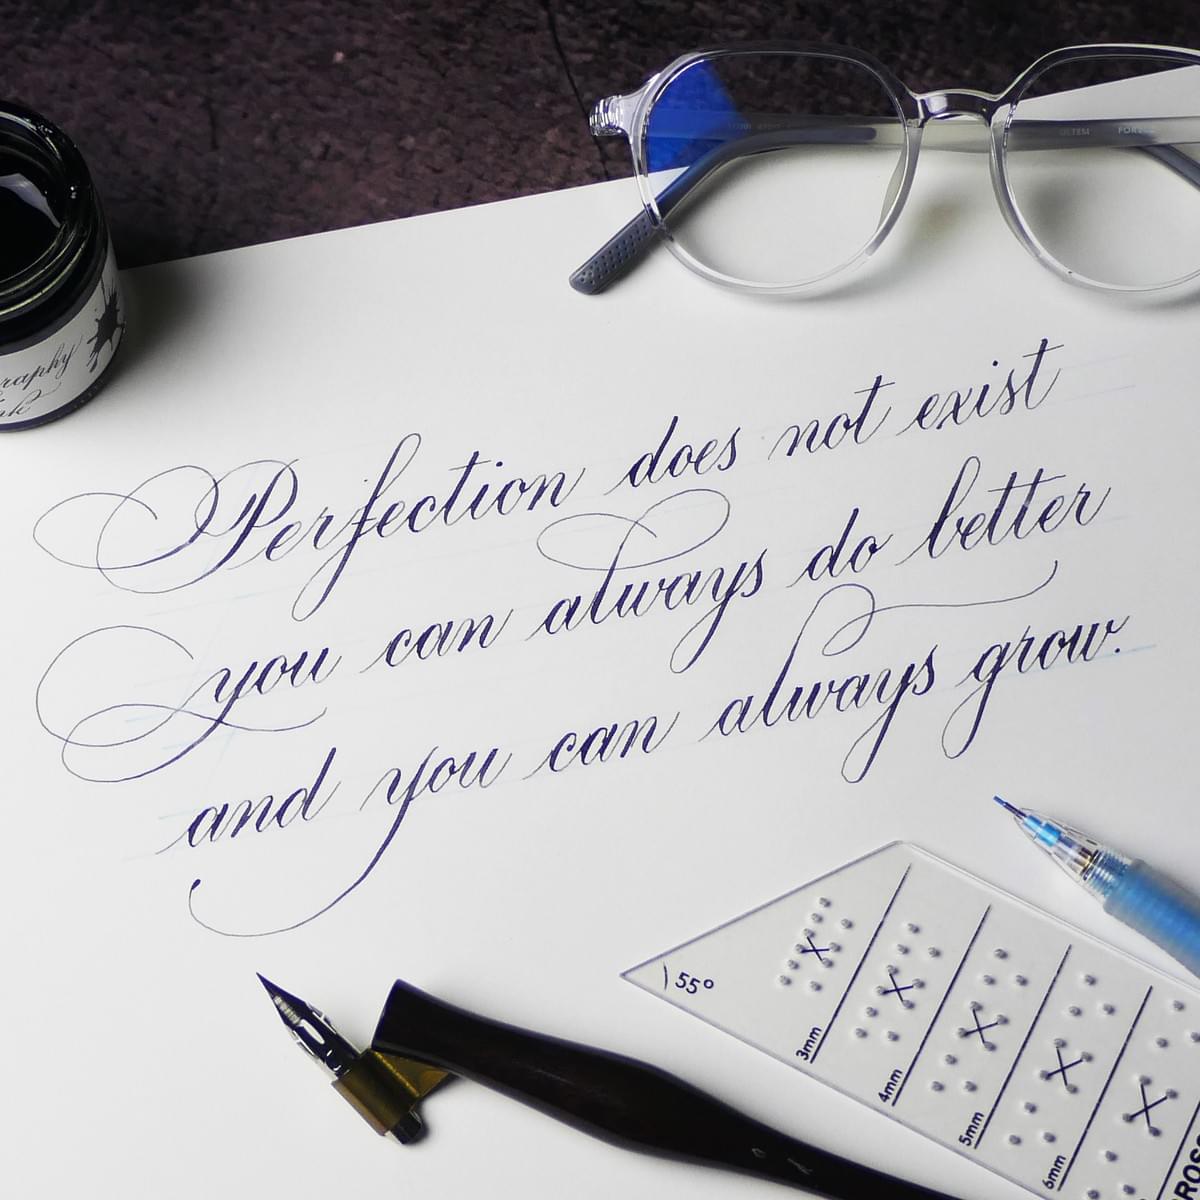 ULTEM
Perfection does not exist
you can always do better
and you can always grow.
55°
3mm
4mm
5mm
6mm